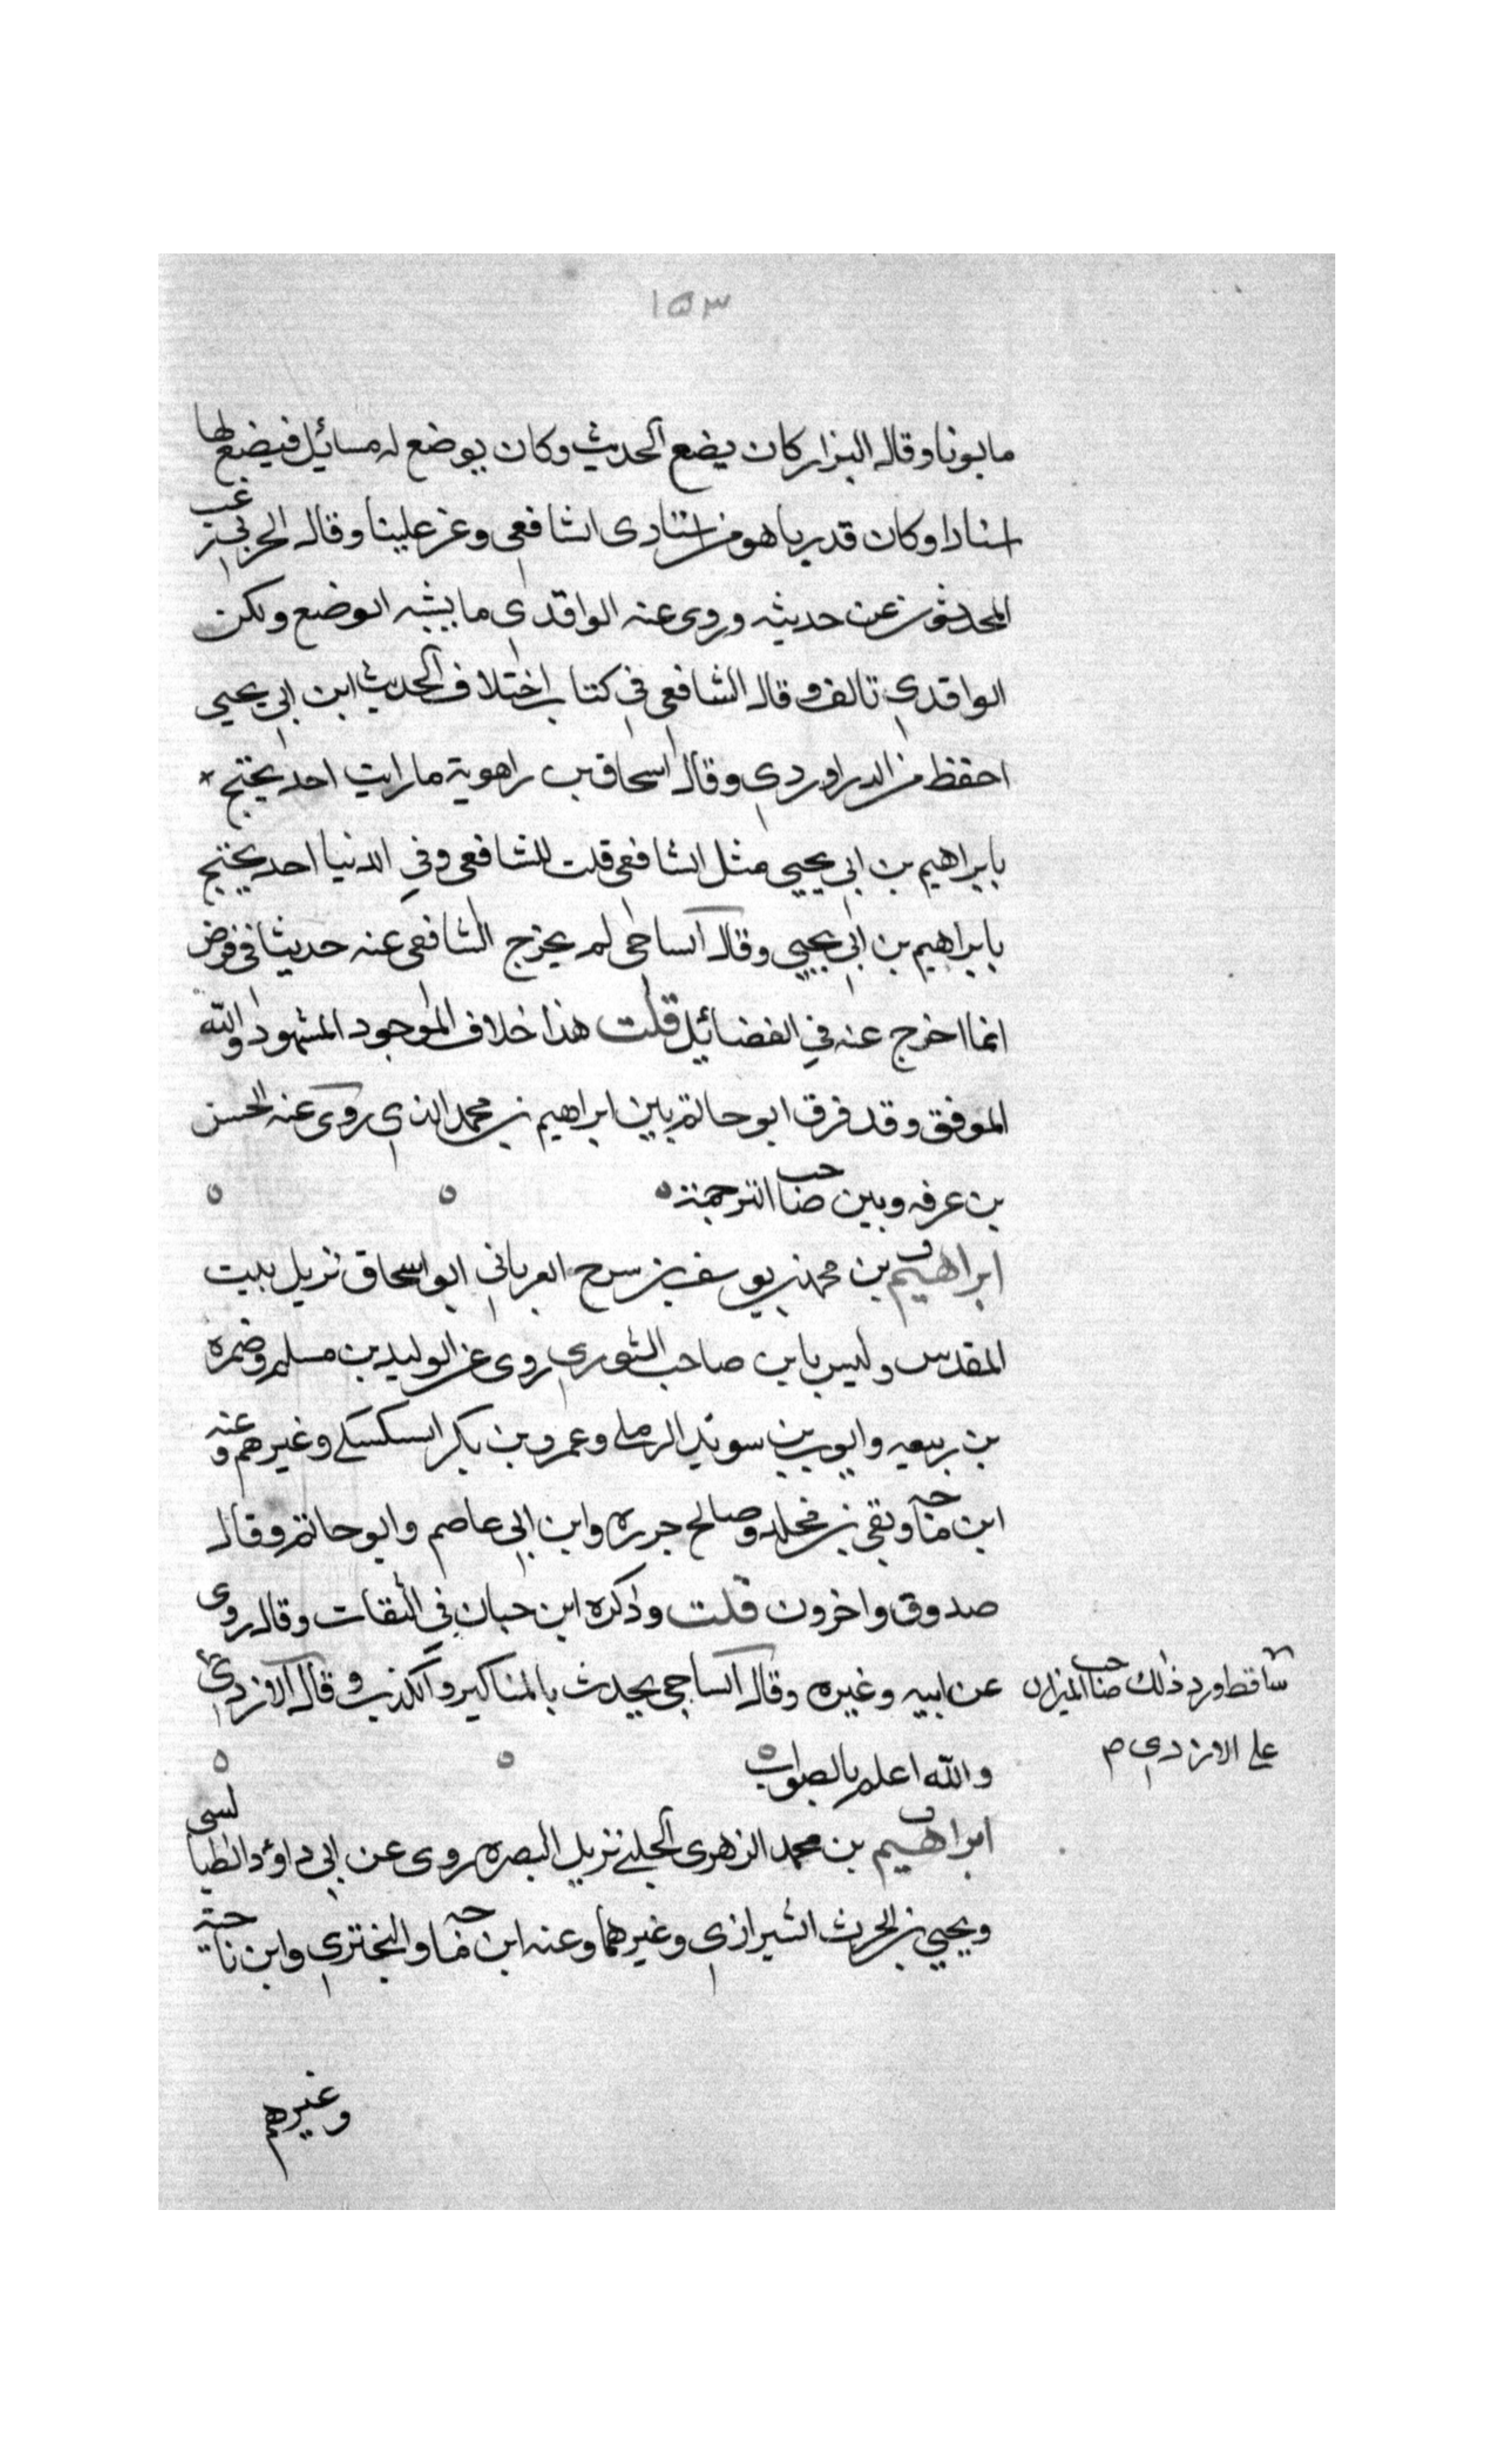 ١٥٣
مابونا وقال البزار كان يضع الحديث وكان يوضع له مسائل فيضع لها
اسنادا وكان قدريا هو من استاذى الشافعى وعز علينا وقال الحربي رغب
المحدثون عن حديثه وروى عنه الواقدى ما يشبه الوضع ولكن
الواقدي تالف وقال الشافعى في كتاب اختلاف الحديث ابن ابي يحيى
احفظ من الدراوردي وقال اسحاق بن راهوية ما رايت احد يحتج
بابراهيم بن ابي يحيى مثل الشافعى قلت للشافعى وفي الدنيا احد يحتج
بابراهيم بن ابي يحيى وقال الساجى لم يخرج الشافعى عنه حديثا في فرض
انما اخرج عنه في الفضائل قلت هذا خلاف الموجود المشهود والله
الموفق وقد فرق ابو حاتم بين ابراهيم بن محمد الذي روى عنه الحسن
بن عرفه وبين صاحب الترجمة
ابراهيم ق بن محمد بن يوسف بن سرح العرباني ابو اسحاق نزيل بيت
المقدس وليس بابن صاحب الثوري روى عن الوليد بن مسلم وضمره
بن ربيعه وايوب بن سويد الرملى وعمرو بن بكر السكسكى وغيرهم وعنه
ابن ماجه وبقى بن مخلد وصالح جرره وابن ابي عاصم وابو حاتم وقال
صدوق واخرون قلت وذكره ابن حبان في الثقات وقال روى
عن ابيه وغيره وقال الساجى يحدث بالمناكير والكذب وقال الازدي
ساقط ورد ذلك صاحب الميزان
على الازدي م
والله اعلم بالصواب
ابراهيم ق بن محمد الزهرى الحلبى نزيل البصره روى عن ابي داؤد الطيالسى
ويحيى بن الحرث الشيرازي وغيرهما وعنه ابن ماجه والبختري وابن ناجية
وغيرهم